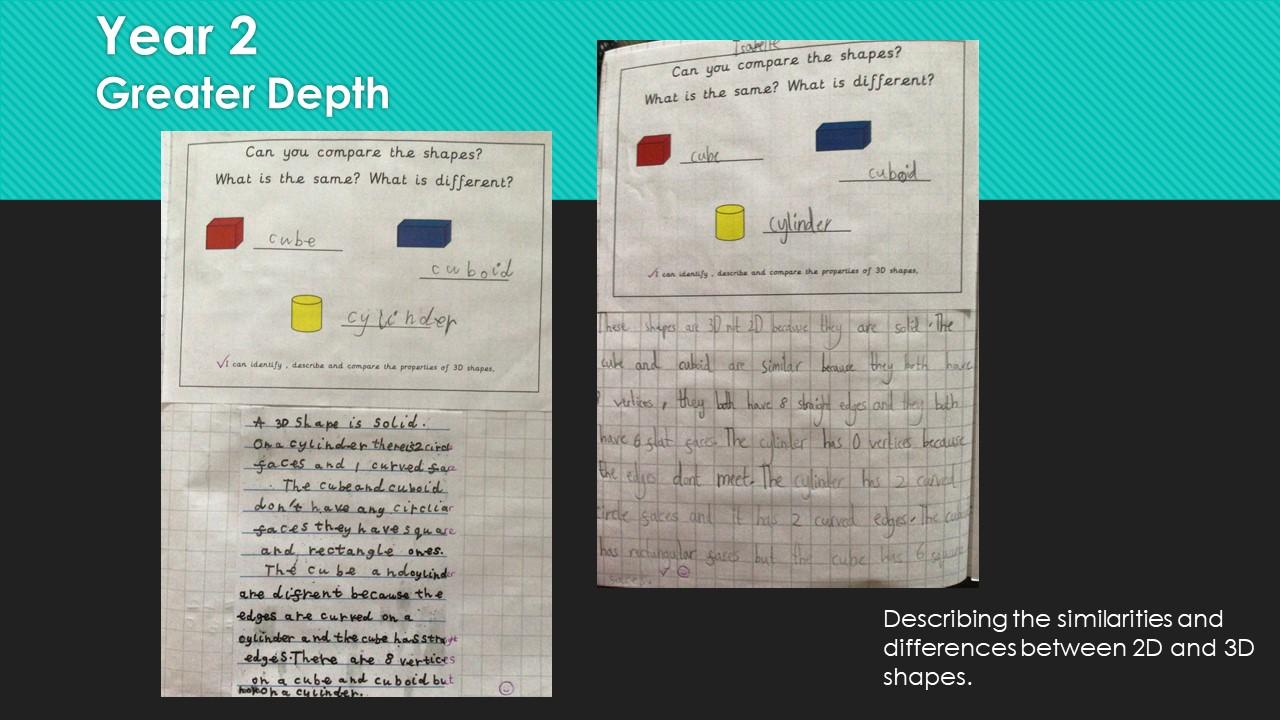 Year 2
Greater Depth
Can you compare the shapes?
What is the same? What is different?
cube
cuboid
cylinder
✓I can identify , describe and compare the properties of 3D shapes.
A 3D Shape is Solid.
On a cylinder there is 2 circl
faces and 1 curved fac
The cube and cuboid
don't have any circliar
faces they have square
and rectangle ones.
The cube and cylinder
are difrent because the
edges are curved on a
cylinder and the cube has straight
edges. There are 8 vertices
on a cube and cuboid but
non on a cylinder.
Isabelle
Can you compare the shapes?
What is the same? What is different?
cube
cuboid
cylinder
✓I can identify , describe and compare the properties of 3D shapes.
These shapes are 3D not 2D because they are solid. The
cube and cuboid are similar because they both have
vertices, they both have 8 straight edges and they both
have 6 flat faces. The cylinder has 0 vertices because
the edges dont meet. The cylinder has 2 curved
circle faces and it has 2 curved edges. The
has rectangular faces but the cube has 6 square
Describing the similarities and
differences between 2D and 3D
shapes.